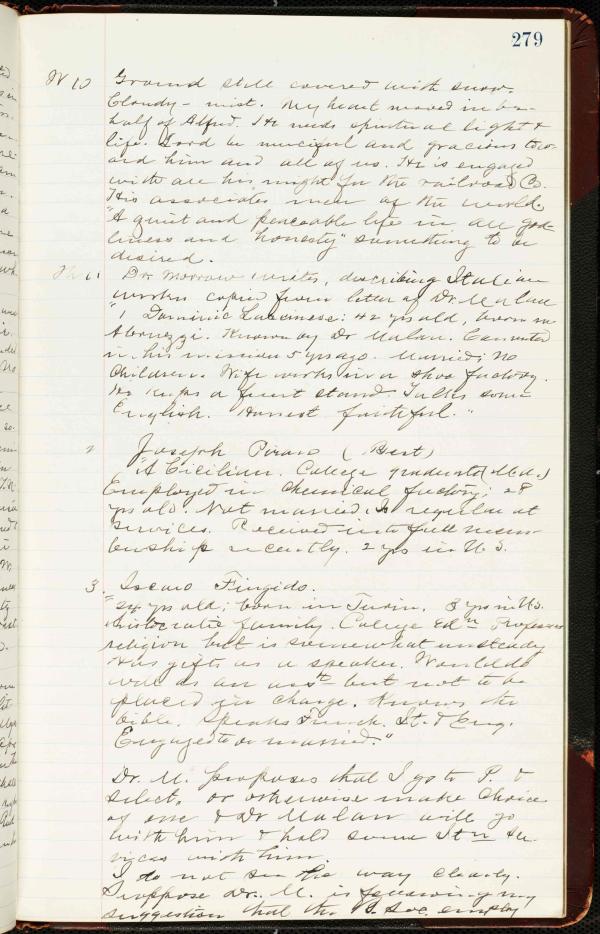 279
W 10 Ground still covered with snow.
Cloudy - mist. My heart moved in be-
half of Alfred. He needs spiritual light &
life. Lord be merciful and gracious tow-
ard him and all of us. He is engaged
with all his might for the railroad Co.
His associates men of the world.
"A quiet and peaceable life in all god-
liness and honesty" something to be
desired.
Th 11 Dr. Morrow writes, describing Italian
workers copied from letter of Dr. Malan
"1 Dominic : 42 yrs old, born in
Abruzzi. Known by Dr Malan. Converted
in his mission 5 yrs ago. Married; No
Children. Wife works in a shoe factory.
He keeps a fruit stand. Talks some
English. Honest faithful."
2 Joseph Piraro (Best)
"A Cicilian. College graduate (Md.)
Employed in Chemical factory; 28
yrs old. Not married. Is regular at
services. Received into full mem-
bership recently. 2 yrs in U.S.
3. Fingido.
"24 yrs old; born in Turin. 3 yrs in U.S.
Aristocratic family. College Edn Professes
religion but is somewhat unsteady
Has gifts as a speaker. Would do
well as an asst but not to be
placed in charge. Knows the
Bible. Speaks French. It. & Eng.
Engaged to be married."
Dr. M. proposes that I go to P. &
select, or otherwise make choice
of one & Dr Malan will go
with him & hold some Itn ser-
vices with him.
I do not see the way clearly.
I suppose Dr. M. is following my
suggestion that the B. Soc. employ